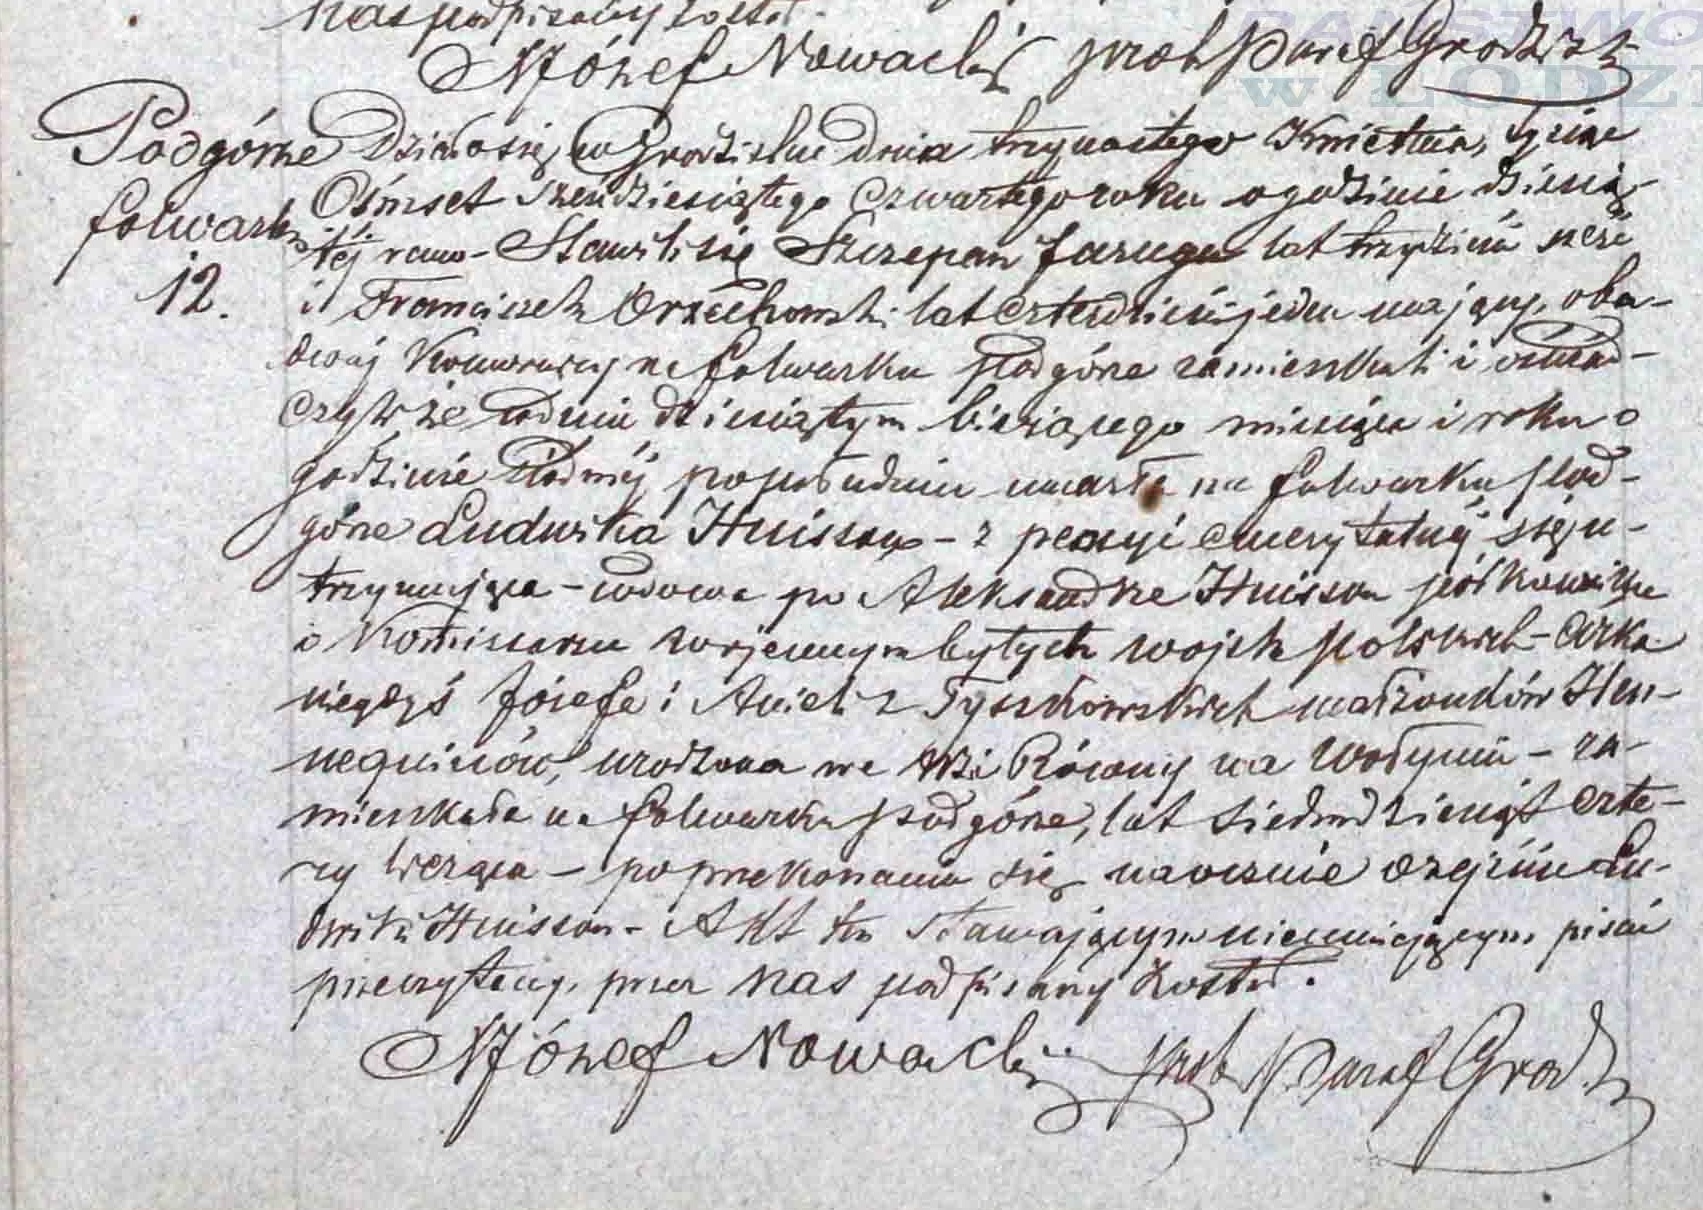 nas podpisany został.
X Józef Nowacki prob Paraf Grodzisk
PAŃSTWO
w ŁODZI
Podgórze Działo się w Grodzisku dnia trzynastego Kwietnia, tysiąc
folwark Ośmset sześdziesiątego czwartego roku o godzinie dziesią-
téj rano - Stawili się Szczepan Jaruga lat trzydzieści sześć
12. i Franciszek Orzechowski lat czterdzieści jeden mający, oba-
dwaj Komornicy na folwarku Podgórze zamieszkali i oświad-
czyli że w dniu dziesiątym bieżącego miesiąca i roku o
godzinie siódméj popołudniu umarła na folwarku Pod-
górze Ludwika Huisson - z pensyi emerytalnéj się u-
trzymująca - wdowa po Aleksandrze Huisson półkowniku
i Komissarzu wojennym byłych wojsk polskich - Córka
niegdyś Józefa i Anieli z Tyszkowskich małżonków Hen-
nequinów, urodzona we Wsi Równy na Wołyniu - za-
mieszkała na folwarku Podgórze, lat siedmdziesiąt czte-
ry licząca - po przekonaniu się naocznie o zejściu Lu-
dwiki Huisson - Akt ten stawającym nieumiejącym pisać
przeczytany, przez nas podpisany został.
X Józef Nowacki prob Paraf Grodz